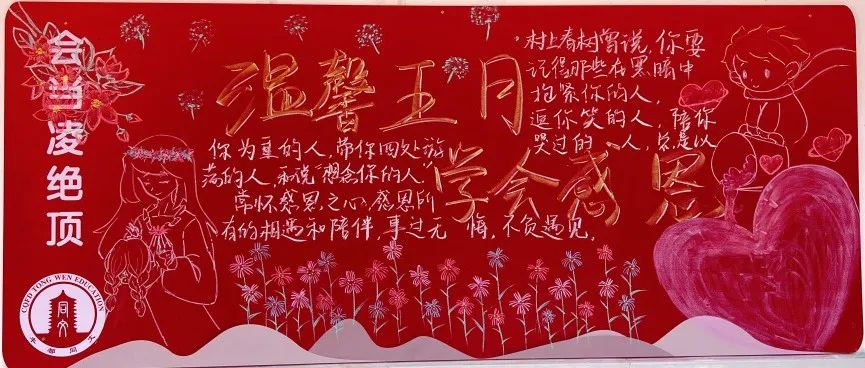 会当凌绝顶
温馨五月
学会感恩
村上春树曾说,你要
记得那些在黑暗中
抱紧你的人,
逗你笑的人,陪你
哭过的 人,总是以
你为重的人,带你四处游
荡的人,和说“想念你的人”
常怀感恩之心,感恩所
有的相遇和陪伴,事过无悔,不负遇见.
CQFD TONG WEN EDUCATION
同文
丰都同文